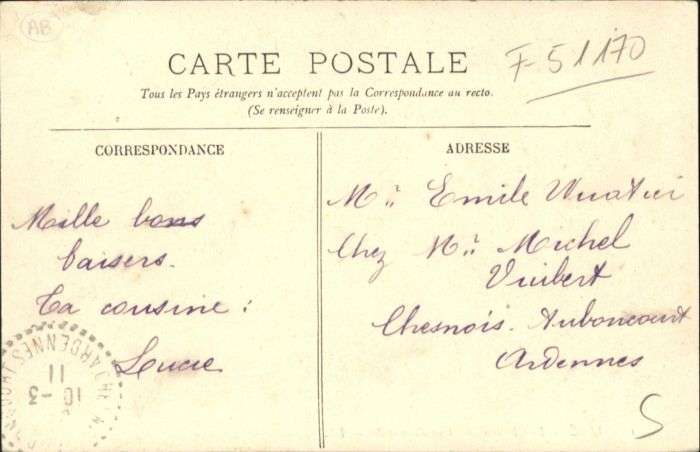 AB
F-51170
CARTE POSTALE
Tous les Pays étrangers n'acceptent pas la Correspondance au recto.
(Se renseigner à la Poste).
CORRESPONDANCE
Mille bons
baisers.
Ta cousine :
Lucie
ADRESSE
Mr Emile
Chez Mr Michel
Vuibert
Chesnois. Auboncourt
Ardennes
S
ARDENNES
10-3
11